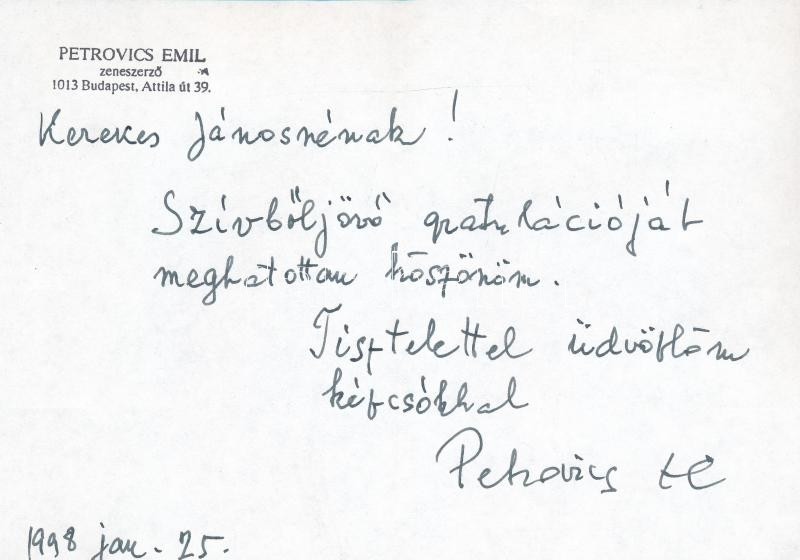 PETROVICS EMIL
zeneszerző
1013 Budapest, Attila út 39.
Kerekes Jánosnénak !
Szívbőljövő gratulációját
meghatottan köszönöm.
Tisztelettel üdvözlöm
kézcsókkal
Petrovics E
1998 jan. 25.